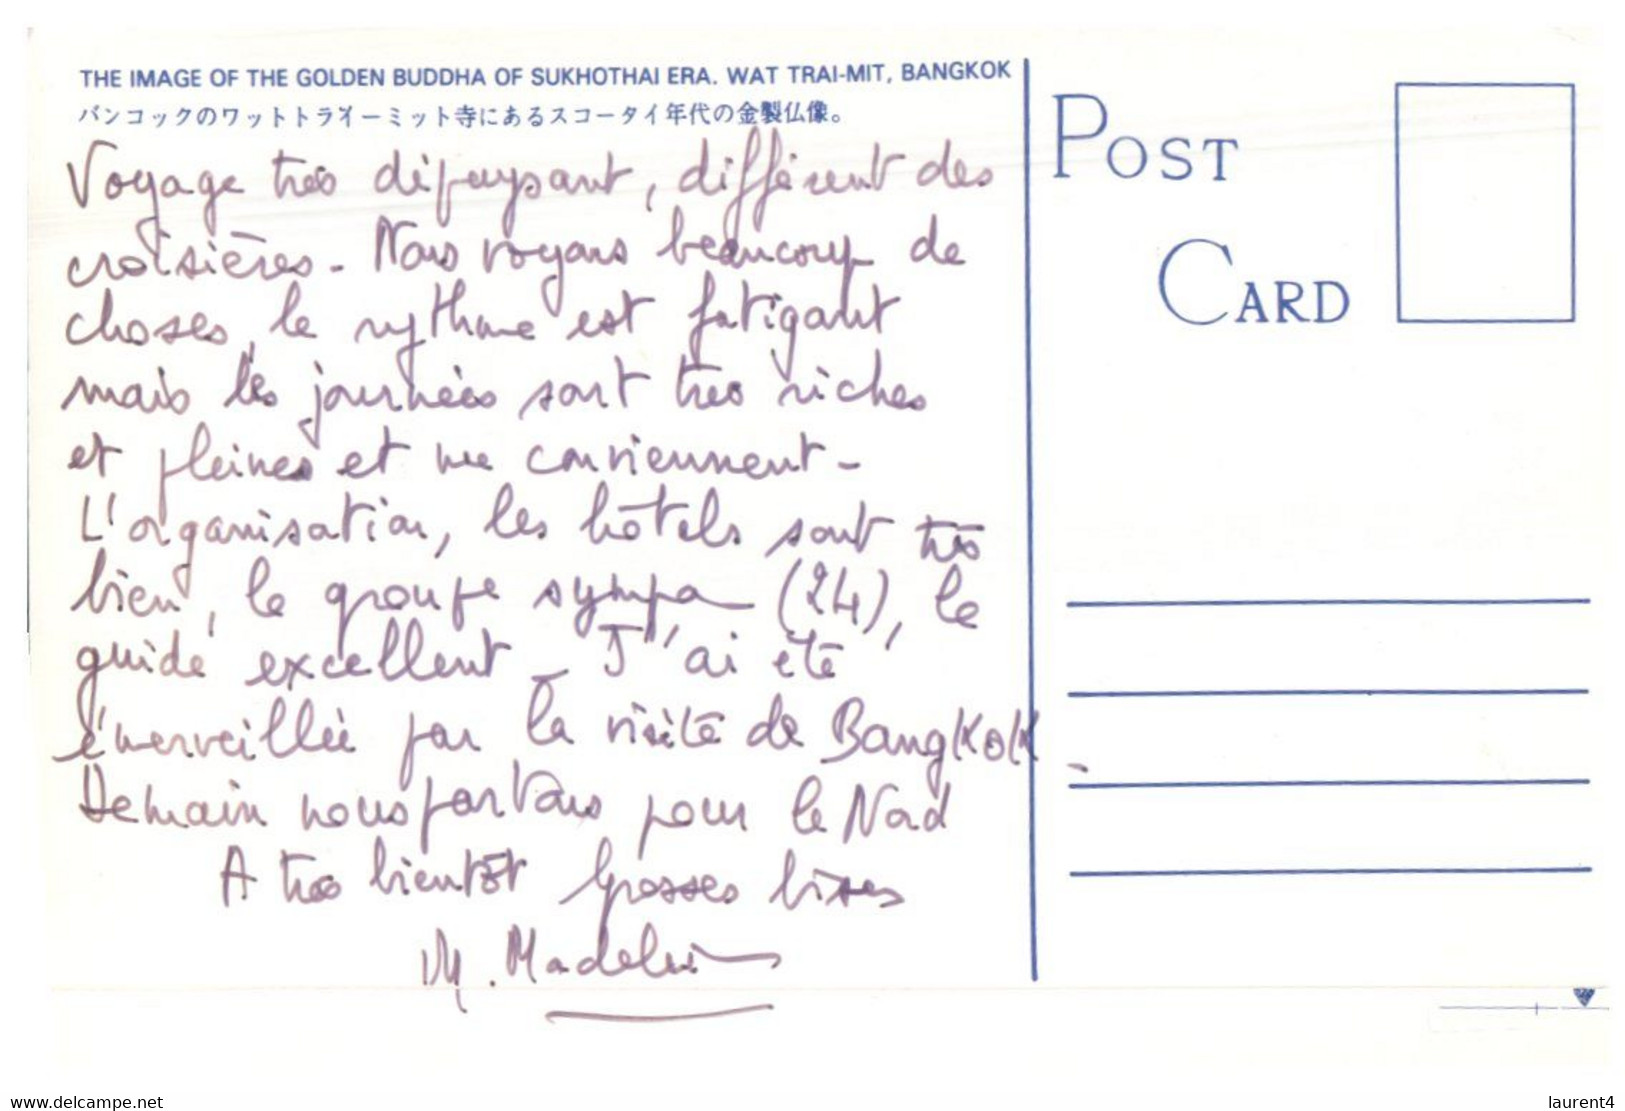 THE IMAGE OF THE GOLDEN BUDDHA OF SUKHOTHAI ERA. WAT TRAI-MIT, BANGKOK
バンコックのワットトライーミット寺にあるスコータイ年代の金製仏像。
POST
CARD
Voyage très dépaysant, différent des
croisières - Nous voyons beaucoup de
choses, le rythme est fatigant
mais les journées sont très riches
et pleines et me conviennent -
L'organisation, les hôtels sont très
bien, le groupe sympa (24), le
guide excellent - J'ai été
émerveillée par la visite de BangKoK -
Demain nous partons pour le Nord
A très bientôt Grosses bises
M. Madeleine
www.delcampe.net
laurent4